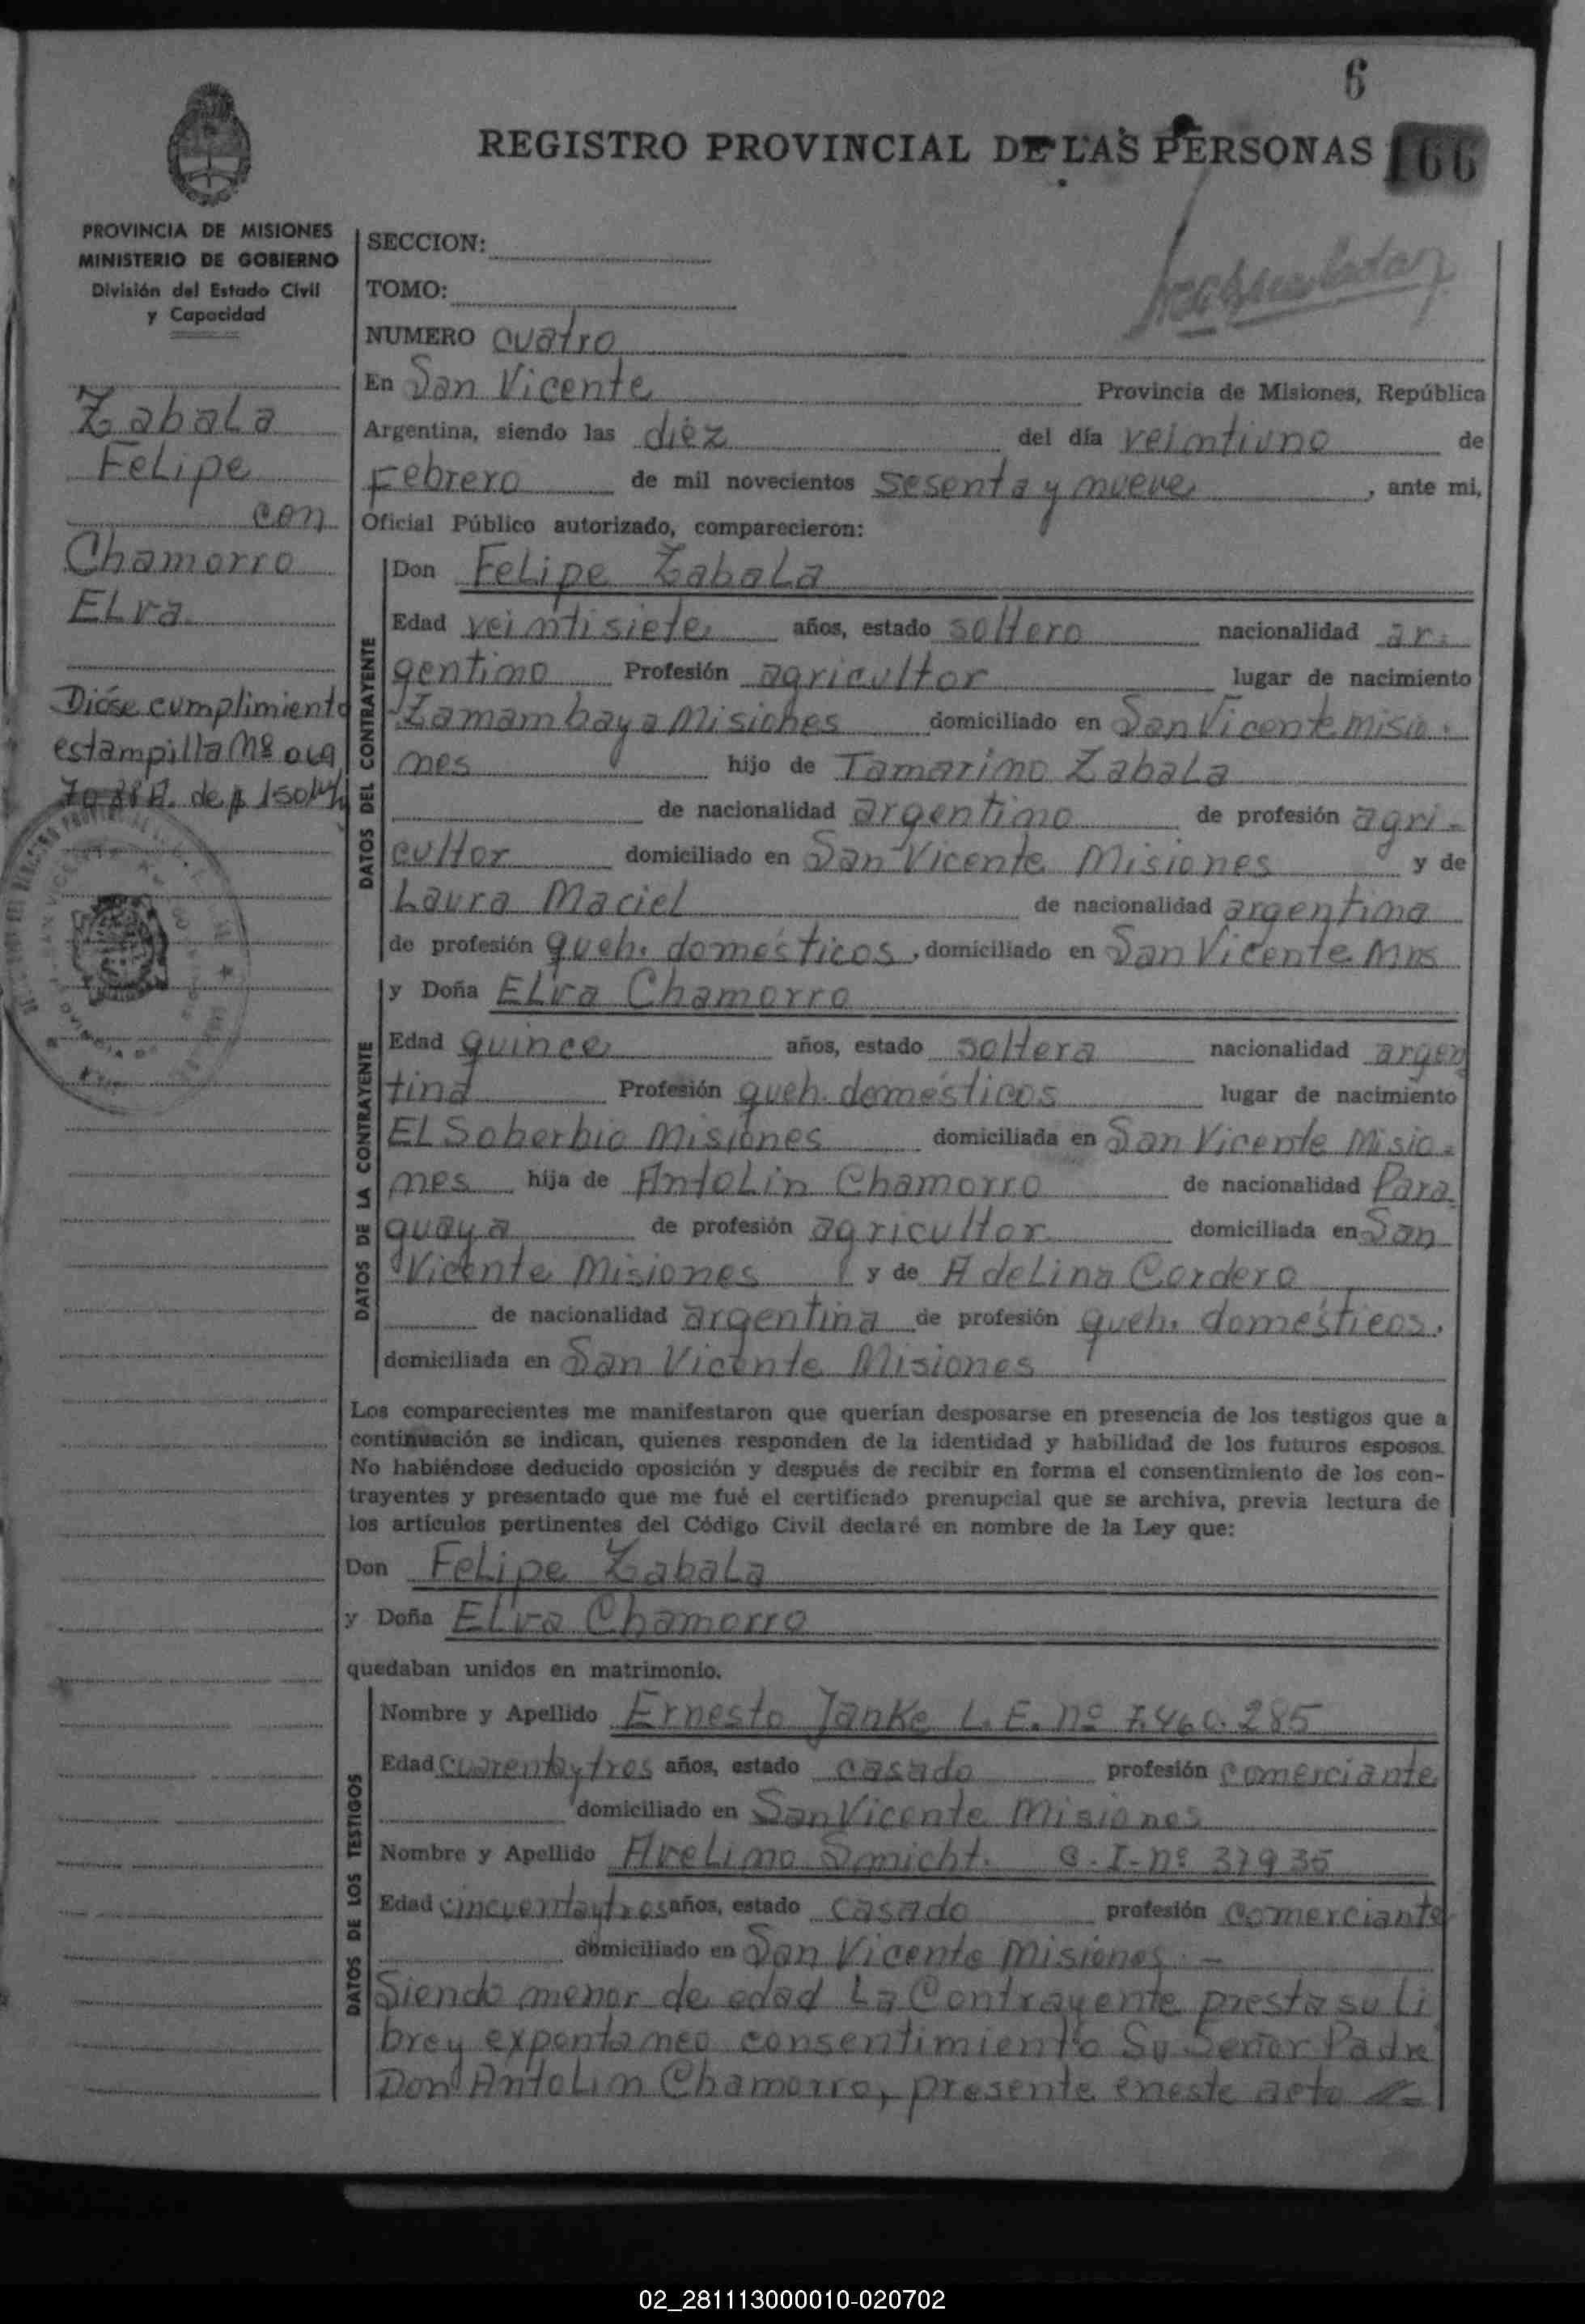 6
REGISTRO PROVINCIAL DE LAS PERSONAS 166
PROVINCIA DE MISIONES
MINISTERIO DE GOBIERNO
División del Estado Civil
y Capacidad
Zabala
Felipe
con
Chamorro
Elva
Dióse cumplimiento
estampilla Nº
de $ 150 m/n
SECCION:
TOMO:
NUMERO cuatro
En San Vicente Provincia de Misiones, República
Argentina, siendo las diez del día veintiuno de
Febrero de mil novecientos sesenta y nueve, ante mi,
Oficial Público autorizado, comparecieron:
DATOS DEL CONTRAYENTE
Don Felipe Zabala
Edad veintisiete años, estado soltero nacionalidad ar-
gentino Profesión agricultor lugar de nacimiento
Zamambaya Misiones domiciliado en San Vicente Misio-
nes hijo de Tamarino Zabala
de nacionalidad argentino de profesión agri-
cultor domiciliado en San Vicente Misiones y de
Laura Maciel de nacionalidad argentina
de profesión queh. domésticos, domiciliado en San Vicente Mns
DATOS DE LA CONTRAYENTE
y Doña Elva Chamorro
Edad quince años, estado soltera nacionalidad argen
tina Profesión queh. domésticos lugar de nacimiento
El Soberbio Misiones domiciliada en San Vicente Misio-
nes hija de Antolin Chamorro de nacionalidad Para
guaya de profesión agricultor domiciliada en San
Vicente Misiones y de Adelina Cordero
de nacionalidad argentina de profesión queh. domésticos,
domiciliada en San Vicente Misiones
Los comparecientes me manifestaron que querían desposarse en presencia de los testigos que a
continuación se indican, quienes responden de la identidad y habilidad de los futuros esposos.
No habiéndose deducido oposición y después de recibir en forma el consentimiento de los con-
trayentes y presentado que me fué el certificado prenupcial que se archiva, previa lectura de
los artículos pertinentes del Código Civil declaré en nombre de la Ley que:
Don Felipe Zabala
y Doña Elva Chamorro
quedaban unidos en matrimonio.
DATOS DE LOS TESTIGOS
Nombre y Apellido Ernesto Janke L. E. nº 7.460.285
Edad cuarentaytres años, estado casado profesión comerciante
domiciliado en San Vicente Misiones
Nombre y Apellido Avelino Smicht. C. I- nº 37935
Edad cincuentaytres años, estado casado profesión comerciante
domiciliado en San Vicente Misiones -
Siendo menor de edad La Contrayente presta su li
bre y expontaneo consentimiento Su Señor Padre
Don Antolin Chamorro, presente eneste acto
02_281113000010-020702